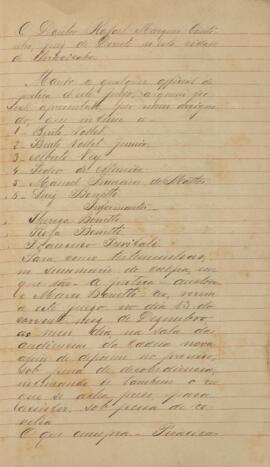 O Doutor Rafael Marques Couti
nho, juiz de Direito n'esta cidade
de Piracicaba.
Mando a qualquer official de
justiça d'este juizo, a quem for
este apresentado, por mim assigna
do, que intime a
1 Bento Vollet
2 Bento Vollet Junior
3 Alberto Vey
4 Pedro de
5 Manoel Francisco de Mattos
6 Luiz Bonetti
Informantes:
Thereza Bonetti
Rosa Bonetti
Francisco
Para como testemunhas,
no summario de culpa, em
que são A. a justiça auctora
e Marco Bonetti reo, virem
a este juizo no dia 13 do
corrente mez de Dezembro,
ao meio dia, na sala das
audiencias da Cadea nova
afim de deporem no processo,
sob pena de desobediencia,
intimando-se tambem o reo
que se acha preso para
assistir, sob pena de re
velia.
O que cumpra. Piracica